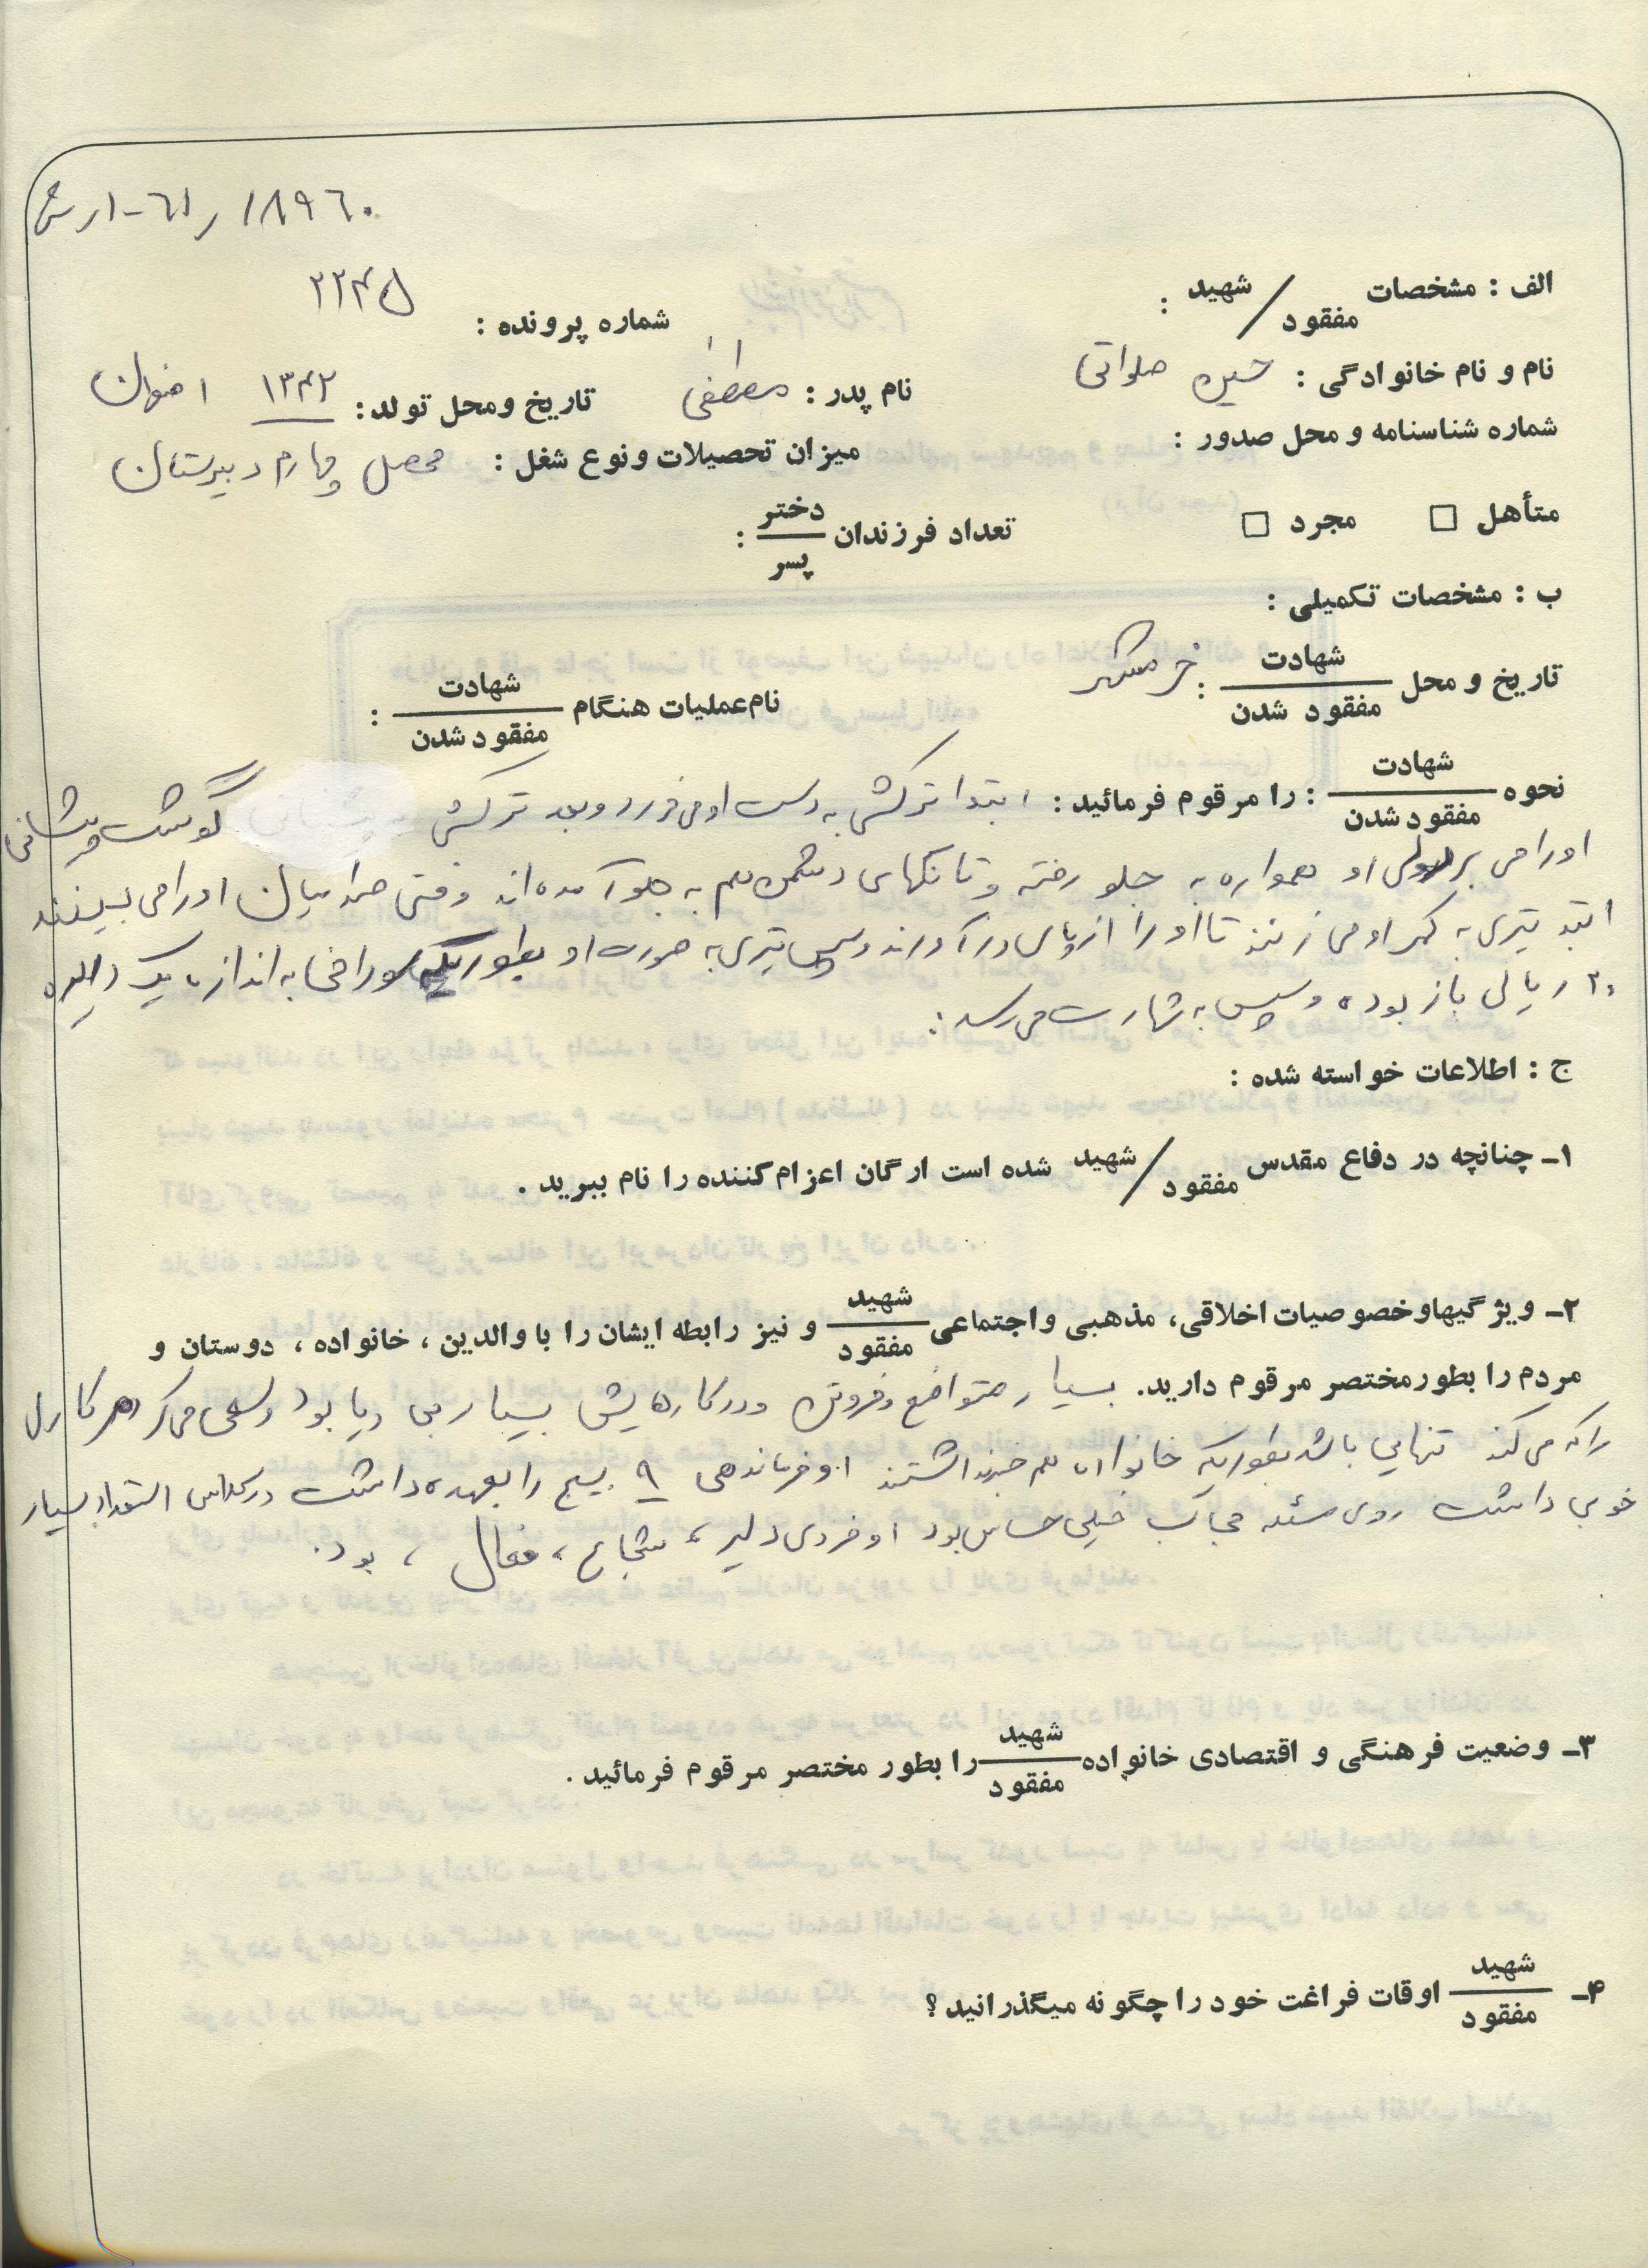 ۱۸۹۶۰ ر ۶۱-۱ ر ش
الف : مشخصات شهید / مفقود :
شماره پرونده : ۲۲۴۵
نام و نام خانوادگی : حسین صلواتی نام پدر : مصطفی تاریخ ومحل تولد: ۱۳۴۲ اصفهان
شماره شناسنامه و محل صدور : میزان تحصیلات و نوع شغل : محصل چهارم دبیرستان
متأهل □ مجرد □ تعداد فرزندان دختر / پسر :
ب : مشخصات تکمیلی :
تاریخ و محل شهادت / مفقود شدن : خرمشهر نام عملیات هنگام شهادت / مفقود شدن :
نحوه شهادت / مفقود شدن : را مرقوم فرمائید : ابتدا ترکشی به دست او می خورد و بعد ترکش گوشت پیشانی
او را می برد ولی او همواره به جلو رفته و تانکهای دشمن هم به جلو آمده اند وقتی صدامیان او را می بینند
ابتد تیری به کمر او می زنند تا او را از پای در آورند و سپس تیری به صورت او بطوریکه سوراخی به اندازه یک دایره
۲۰ ریالی باز بوده و سپس به شهادت می رسد.
ج : اطلاعات خواسته شده :
۱- چنانچه در دفاع مقدس شهید / مفقود شده است ارگان اعزام کننده را نام ببرید .
۲- ویژگیها وخصوصیات اخلاقی، مذهبی واجتماعی شهید / مفقود و نیز رابطه ایشان را با والدین ، خانواده ، دوستان و
مردم را بطور مختصر مرقوم دارید. بسیار متواضع و فروتن و در کارهایش بسیار بی ریا بود و سعی می کرد هر کاری
را که می کند تنهایی باشد بطوریکه خانواده هم خبر نداشتند او فرماندهی ۹ بسیج را بعهده داشت در کلاس استعداد بسیار
خوبی داشت روی مسئله حجاب خیلی حساس بود او فردی دلیر ، شجاع ، فعال ، بود.
۳- وضعیت فرهنگی و اقتصادی خانواده شهید / مفقود را بطور مختصر مرقوم فرمائید .
۴- شهید / مفقود اوقات فراغت خود را چگونه میگذرانید ؟